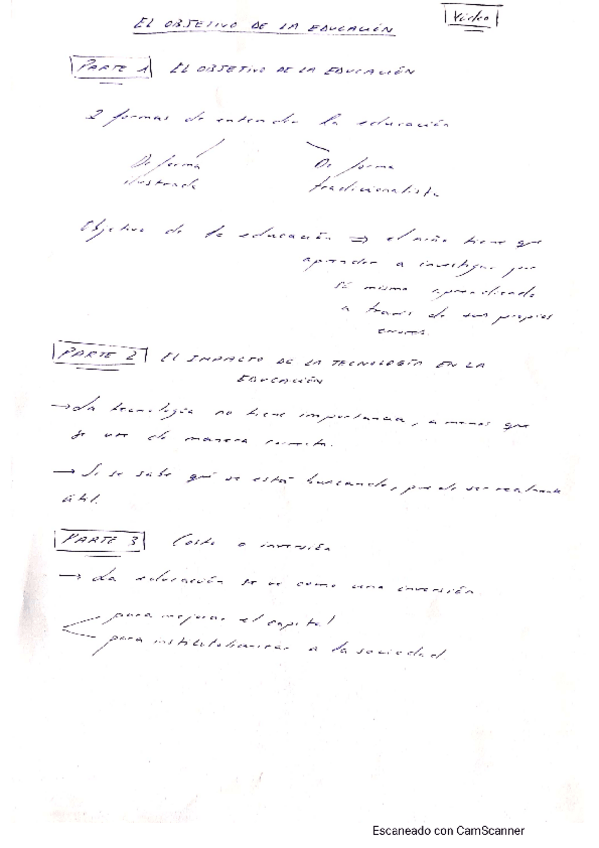 Video
EL OBJETIVO DE LA EDUCACIÓN
PARTE 1 EL OBJETIVO DE LA EDUCACIÓN
2 formas de entender la educación
De forma ilustrada
De forma tradicionalista
Objetivo de la educación => el niño tiene que
aprender a investigar por
sí mismo aprendiendo
a través de sus propios
errores.
PARTE 2 EL IMPACTO DE LA TECNOLOGÍA EN LA
EDUCACIÓN
→ La tecnología no tiene importancia, a menos que
se use de manera correcta.
→ Si se sabe qué se está buscando, puede ser realmente
útil.
PARTE 3 Coste o inversión
→ La educación se ve como una inversión
para mejorar el capital
para institucionalizar a la sociedad
Escaneado con CamScanner